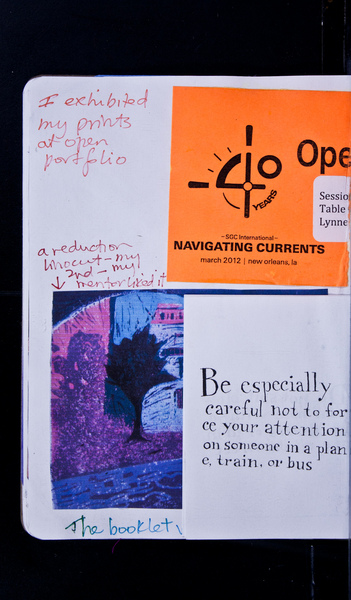 I exhibited
my prints
at open
portfolio
40
YEARS
Ope
Sessio
Table
Lynne
– SGC International –
NAVIGATING CURRENTS
march 2012 | new orleans, la
a reduction
linocut – my
2nd – my
mentor liked it
Be especially
careful not to for
ce your attention
on someone in a plan
e, train, or bus
The booklet